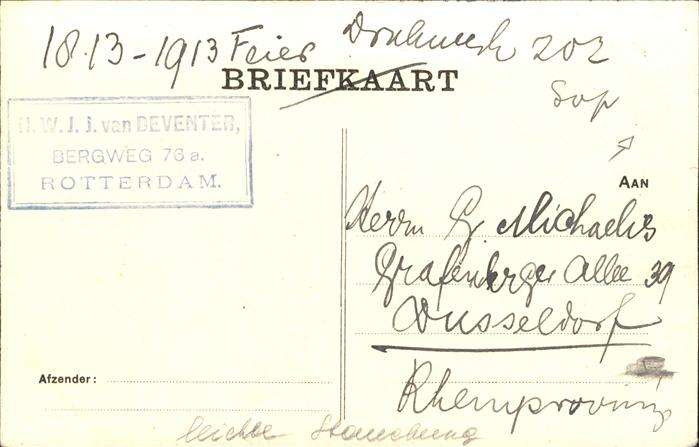 1813-1913 Feier Drukwerk 202
BRIEFKAART
H. W. J. J. van DEVENTER,
BERGWEG 76a.
ROTTERDAM.
AAN
Herrn G. Michaelis
Grafenberger Allee 39
Dusseldorf
Rheinprovinz
Afzender:
leichte Stauchung